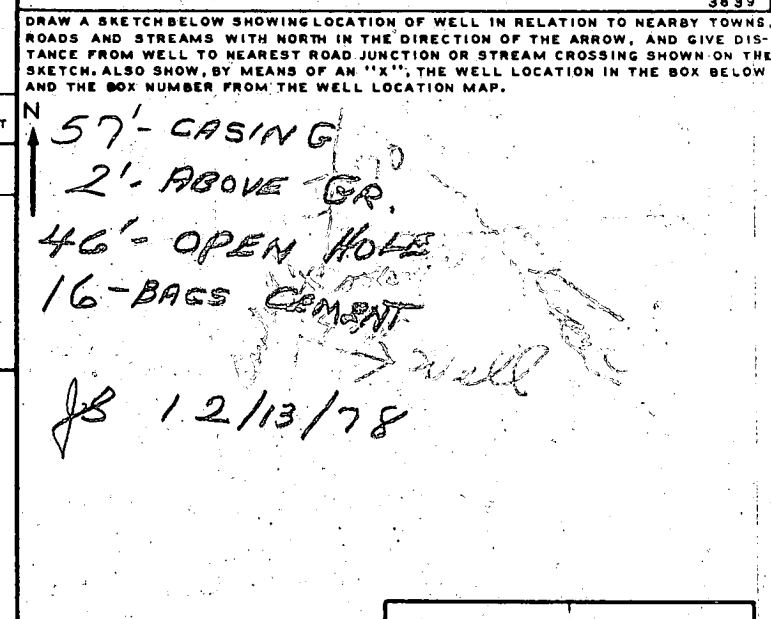 3639
DRAW A SKETCH BELOW SHOWING LOCATION OF WELL IN RELATION TO NEARBY TOWNS,
ROADS AND STREAMS WITH NORTH IN THE DIRECTION OF THE ARROW, AND GIVE DIS-
TANCE FROM WELL TO NEAREST ROAD JUNCTION OR STREAM CROSSING SHOWN ON THE
SKETCH. ALSO SHOW, BY MEANS OF AN "X", THE WELL LOCATION IN THE BOX BELOW
AND THE BOX NUMBER FROM THE WELL LOCATION MAP.
N
57'- CASING
2'- ABOVE GR.
46'- OPEN HOLE
16-BAGS CEMENT
Well
JB 12/13/78